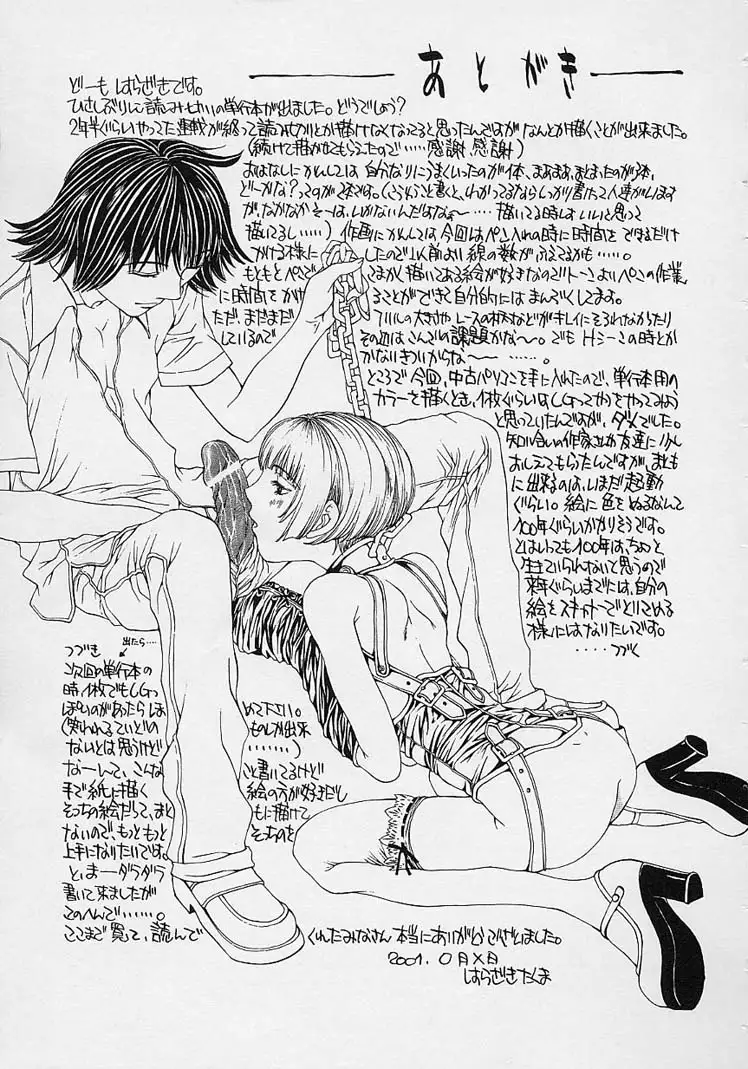 あとがき
どーも はらざきです。
ひさしぶりに読み切りの単行本が出ました。どうでしょう?
2年半ぐらいやってた連載が終って読み切りとか描けなくなってると思ったんですがなんとか描くことが出来ました。
(続けて描かせてもらえたので……感謝、感謝)
おはなしにかんしては 自分なりにうまくいったのが1本、まあまあ、まとまったのが3本、
どーかな?ってのが
が、なかなかそーは、いかないんだけどなぁ〜‥‥描いてる時はいいと思って
描いてるし……)作画にかんしては 今回はペン入れの時に時間を できるだけ
かける様に したので以前より線の数が、ふえてるかも……。
もともとペンで こまかく描いてある絵が好きなのでトーンよりペンの作業
に時間をかけ ることができて自分的には まんぞくしてます。
ただ、まだまだ フリルの大きさや レースの材質などがキレイにそろえれなかったり
しているので その辺は こんごの課題かな〜。でも Hシーンの時とか
かないきついからな〜……。
ところで 今回、中古パソコンを手に入れたので、単行本用の
カラーを描くとき、1枚ぐらいはCGってやつをやってみよう
と思っていたんですが、ダメでした。
知り合いの作家さんや友達に少し
おしえてもらったんですが、まとも
に出来るのは、いまだ起動
ぐらい。絵に色をぬるなんて
100年ぐらいかかりそうです。
とはいっても100年は、ちょっと
生きていられないと思うので
来年ぐらいまでには、自分の
絵をスキャナーでとりこめる
様にはなりたいです。
‥‥つづく
つづき
出たら……
次回の単行本の
時1枚でもCGっ
ぽいのがあったらほ めて下さい。
(笑われるていどの ものしか出来
ないとは思うけど ………)
なーんて、こんな こと書いてるけど
手で紙に描く 絵の方が好きだし
そっちの絵だって、まと もに描けて
ないので、もっともっと そっちのを
上手になりたいです。
と、まーダラダラ
書いて来ましたが
このへんで……。
ここまで買って、読んで くれたみなさん 本当にありがとうございました。
2001. 0月×日
はらざきたくま